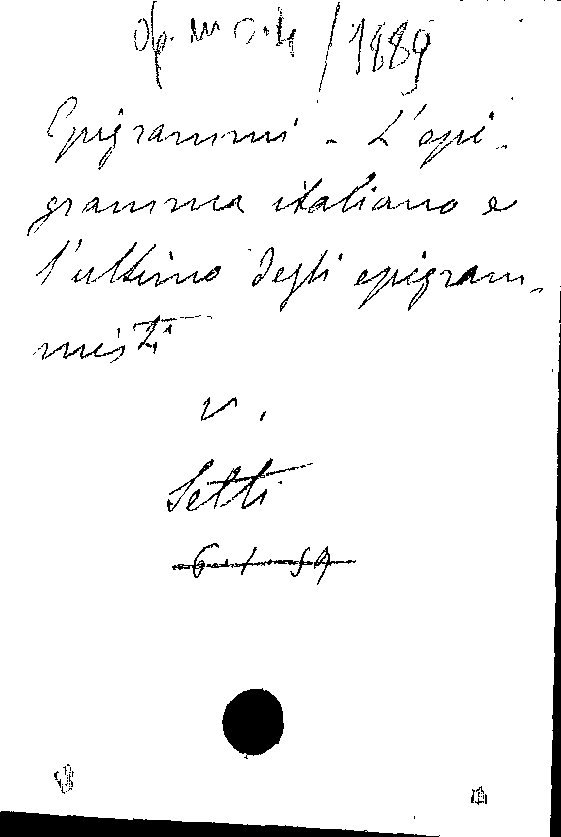 Op. M O.4 / 1889
Epigrammi - L'epi-
gramma italiano e
l'ultimo degli epigram-
misti
v.
Setti